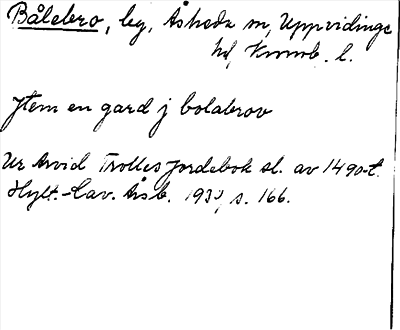 Bålebro, by, Åsheda sn, Uppvidinge
hd, Kronob. l.
Jtem en gard j bolabrov
Ur Arvid Trolles jordebok sl. av 1490-t.
Hylt.-Cav. Årsb. 1937, s. 166.